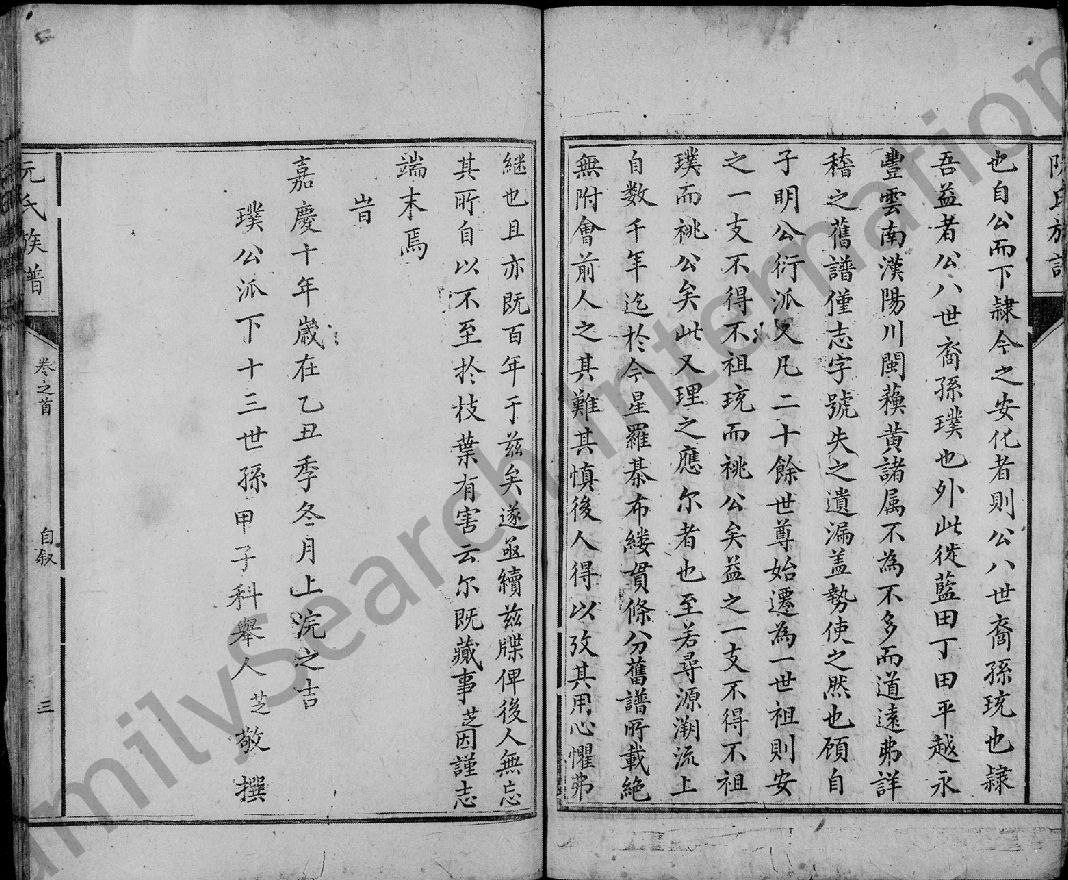 阮氏族譜
也自公而下隸今之安化者則公八世裔孫琉也隸
吾益者公八世裔孫璞也外此從藍田丁田平越永
豐雲南漢陽川閩蘄黃諸属不為不多而道遠弗詳
稽之舊譜僅志字號失之遺漏盖勢使之然也頎自
子明公衍派又凡二十餘世尊始遷為一世祖則安
之一支不得不祖琉而祧公矣益之一支不得不祖
璞而祧公矣此又理之應尔者也至若尋源溯流上
自数千年迄於今星羅棊布縷貫條分舊譜所載絶
無附會前人之其難其慎後人得以攷其用心懼弗
継也且亦既百年于兹矣遂亟續兹牒俾後人無忘
其所自以不至於枝葉有害云尔既蕆事芝因謹志
端末焉
旹
嘉慶十年歲在乙丑季冬月上浣之吉
璞公派下十三世孫甲子科舉人芝敬撰
阮氏族譜
卷之首
自叙
三
FamilySearch International